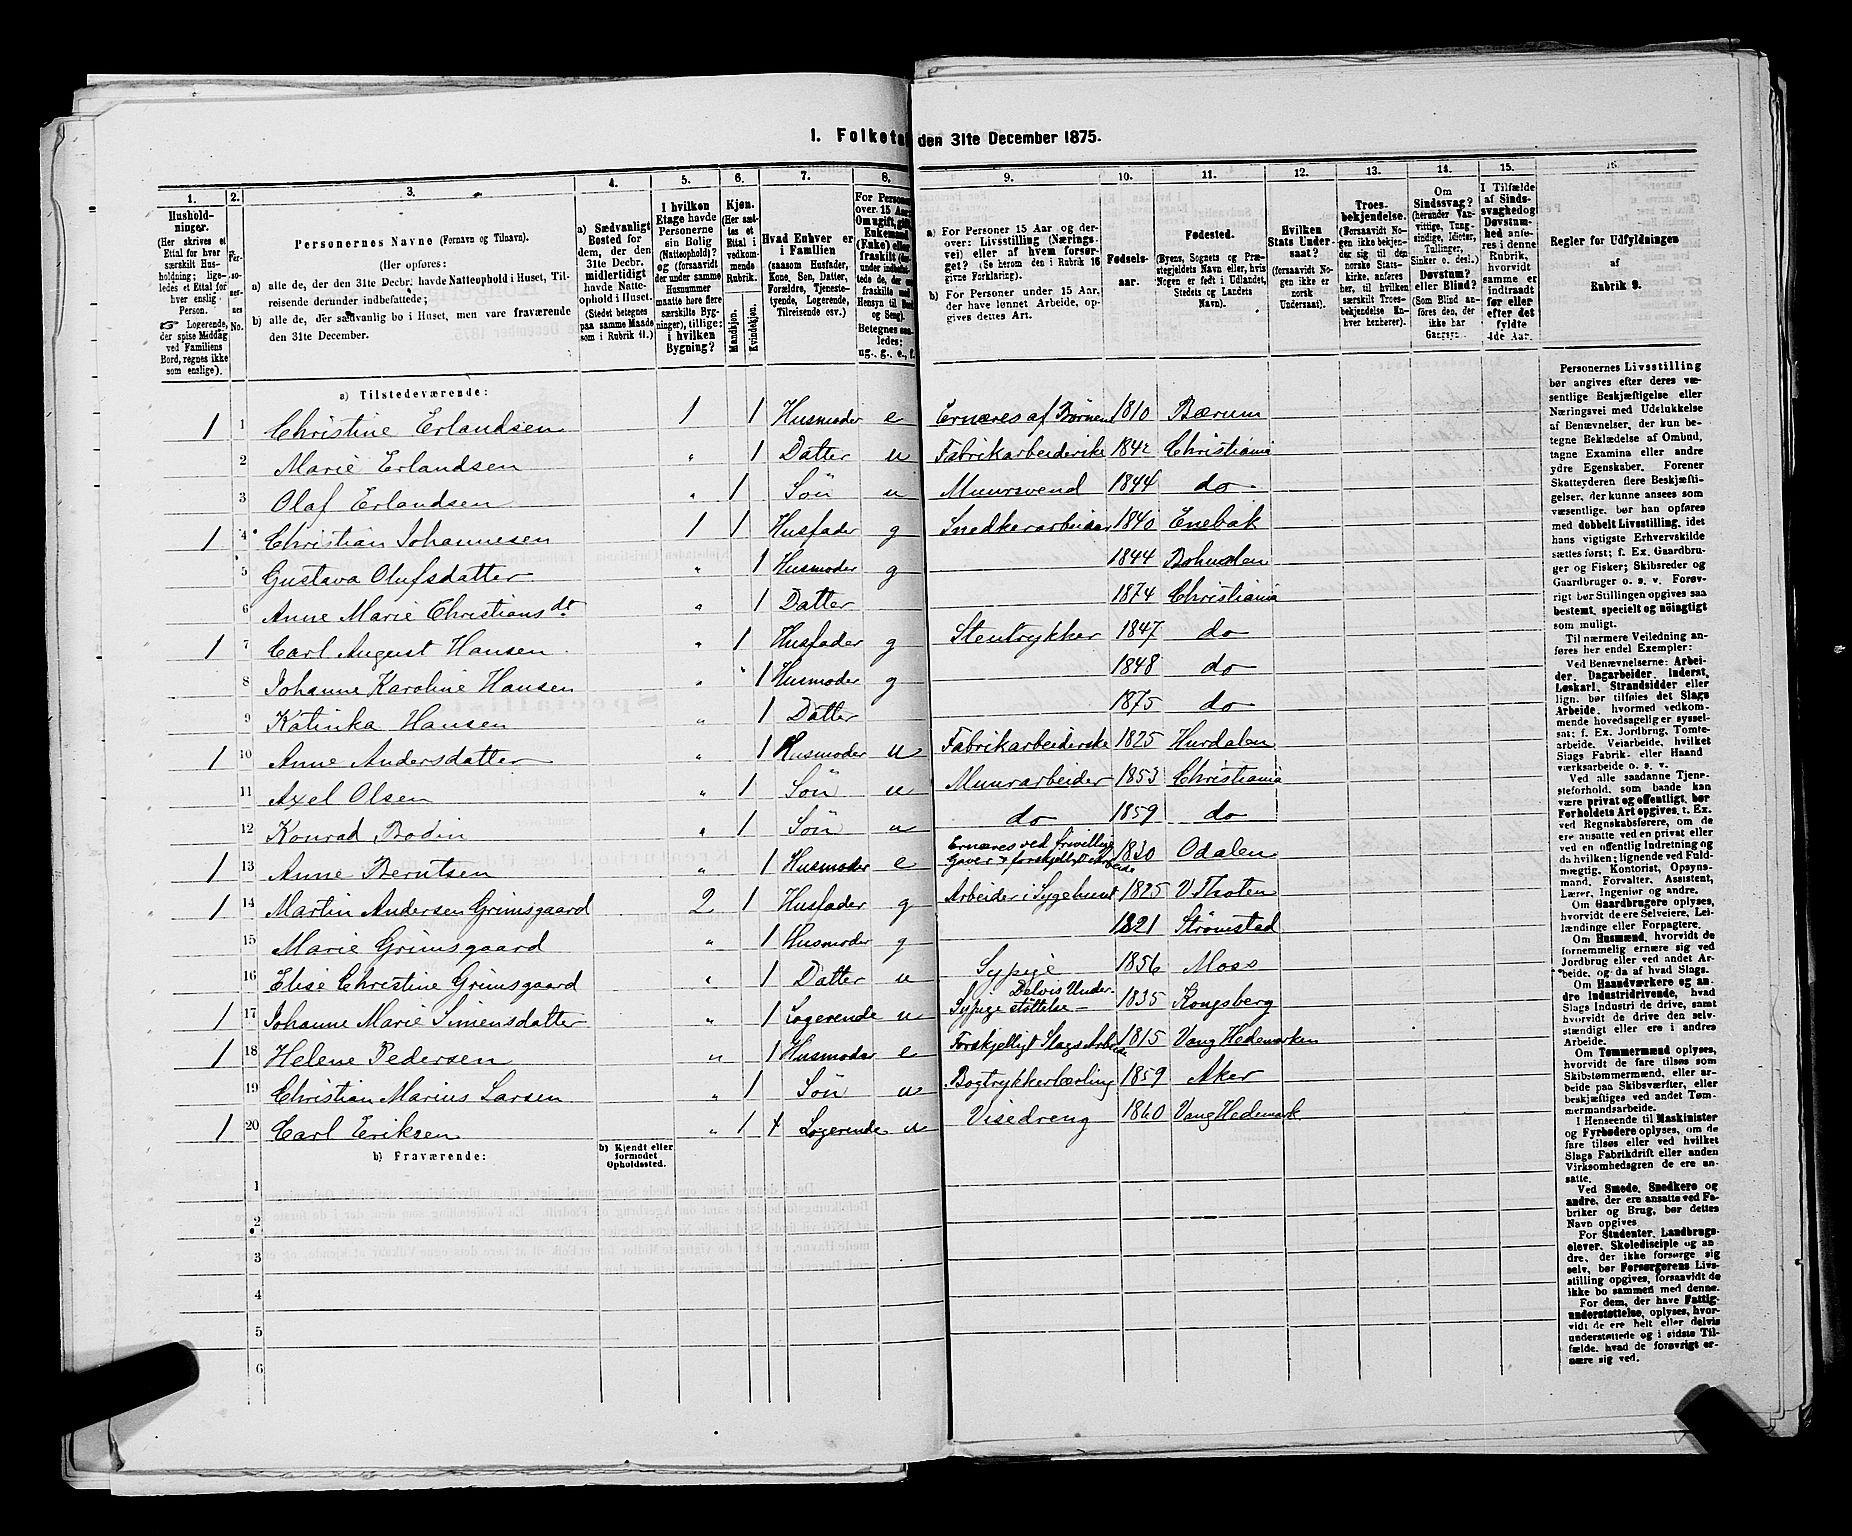 1. Folketal den 31te December 1875.
1. 2. 3. 4. 5. 6. 7. 8. 9. 10. 11. 12. 13. 14. 15. 16.
Hushold-
ninger.
(Her skrives et
Ettal for hver
særskilt Hus-
holdning; lige-
ledes et Ettal for
hver enslig
Person.
☞ Logerende,
der spise Middag
ved Familiens
Bord, regnes ikke
som enslige).
Per-
so-
ner-
nes
No.
Personernes Navne (Fornavn og Tilnavn).
(Her opføres:
a) alle de, der den 31te Decbr. havde Natteophold i Huset, Til-
reisende derunder indbefattede;
b) alle de, der sædvanlig bo i Huset, men vare fraværende
den 31te December.
a) Sædvanligt
Bosted for
dem, der den
31te Decbr.
midlertidigt
havde Natte-
ophold i Huset.
(Stedet betegnes
paa samme Maade
som i Rubrik 11.)
I hvilken
Etage havde
Personerne
sin Bolig
(Natteophold)?
og (forsaavidt
der under samme
Husnummer
maatte høre flere
særskilte Byg-
ninger), tillige:
i hvilken
Bygning?
Kjøn.
(Her sæt-
tes et
Ettal i
vedkom-
mende
Rubrik.
Mandkjøn.
Kvindekjøn.
Hvad Enhver er
i Familien
(saasom Husfader,
Kone, Søn, Datter,
Forældre, Tjeneste-
tyende, Logerende,
Tilreisende osv.)
For Personer
over 15 Aar:
Om ugift, gift,
Enkemand
(Enke) eller
fraskilt
Betegnes saa-
ledes:
ug., g., e., f.
a) For Personer 15 Aar og der-
over: Livsstilling (Nærings-
vei) eller af hvem forsør-
get? (Se herom den i Rubrik 16
givne Forklaring).
b) For Personer under 15 Aar,
der have lønnet Arbeide, op-
gives dettes Art.
Fødsels-
aar.
Fødested.
(Byens, Sognets og Præ-
stegjeldets Navn eller, hvis
Nogen er født i Udlandet,
Stedets og Landets
Navn).
Hvilken
Stats Under-
saat?
(forsaavidt No-
gen ikke er
norsk
Undersaat).
Troes-
bekjendelse.
(Forsaavidt No-
gen ikke bekjen-
der sig til den
norske Stats-
kirke, anføres
her, til hvilken
særskilt Troes-
bekjendelse En-
hver henhører).
Om
Sindssvag?
(herunder Van-
vittige, Tung-
sindige, Idioter,
Tullinger,
Sinker o. desl.)
Døvstum?
eller Blind?
(Som Blind an-
føres den, der
ikke har
Gangsyn.
I Tilfælde
af Sinds-
svaghed og
Døvstum-
hed anfø-
res i denne
Rubrik,
hvorvidt
samme er
indtraadt
før eller
efter det
fyldte
4de Aar.
Regler for Udfyldningen
af
Rubrik 9.
a) Tilstedeværende:
1 1 Christine Erlandsen 1 1 Husmoder e Ernæres af Børnene 1810 Bærum
2 Marie Erlandsen " 1 Datter u Fabrikarbeiderske 1842 Christiania
3 Olaf Erlandsen " 1 Søn u Muursvend 1844 do
1 4 Christian Johannesen 1 1 Husfader g Snedkerarbeider 1840 Enebak
5 Gustava Olufsdatter " 1 Husmoder g 1844
6 Anne Marie Christiansdt " 1 Datter 1874 Christiania
1 7 Carl August Hansen " 1 Husfader g Stentrykker 1847 do
8 Johanne Karoline Hansen " 1 Husmoder g 1848 do
9 Katinka Hansen " 1 Datter 1875 do
1 10 Anne Andersdatter " 1 Husmoder u Fabrikarbeiderske 1825 Hurdalen
11 Axel Olsen " 1 Søn u Muurarbeider 1853 Christiania
12 Konrad Bodin " 1 Søn u do 1859 do
1 13 Anne Berntsen " 1 Husmoder e Ernæres ved frivillige
Gaver & forskjelligt Arbeide 1830 Odalen
1 14 Martin Andersen Grimsgaard 2 1 Husfader g Arbeider i Sygehuset 1825 V. Thoten
15 Marie Grimsgaard " 1 Husmoder g 1821 Strømstad
16 Elise Christine Grimsgaard " 1 Datter u Sypige 1856 Moss
1 17 Johanne Marie Simensdatter " 1 Logerende u Sypige Delvis Under-
støttelse 1835 Kongsberg
1 18 Helene Pedersen " 1 Husmoder e Forskjelligt Slags Arbeide 1815 Vang Hedemarken
19 Christian Marius Larsen " 1 Søn u Bogtrykkerlærling 1859 Aker
1 20 Carl Eriksen " 1 Logerende u Visedreng 1860 Vang Hedemark
b) Fraværende:
b) Kjendt eller
formodet
Opholdssted.
1
2
3
4
5
6
Personernes Livsstilling
bør angives efter deres væ-
sentlige Beskjæftigelse eller
Næringsvei med Udelukkelse
af Benævnelser, der kun be-
tegne Beklædelse af Ombud,
tagne Examina eller andre
ydre Egenskaber. Forener
Skatteyderen flere Beskjæfti-
gelser, der kunne ansees som
væsentlige, bør han opføres
med dobbelt Livsstilling, idet
hans vigtigste Erhvervskilde
sættes først; f. Ex. Gaardbru-
ger og Fisker; Skibsreder og
Gaardbruger o. s. v. Forøv-
rigt bør Stillingen opgives saa
bestemt, specielt og nöiagtigt
som muligt.
Til nærmere Veiledning an-
føres her endel Exempler:
Ved Benævnelserne: Arbei-
der, Dagarbeider, Inderst,
Løskarl, Strandsidder eller
lign. bør tilføies det Slags
Arbeide, hvormed vedkom-
mende hovedsagelig er syssel-
sat; f. Ex. Jordbrug, Tomte-
arbeide, Veiarbeide, hvilket
Slags Fabrik- eller Haand-
værksarbeide o. s. v.
Ved alle saadanne Tjene-
steforhold, som baade kan
være privat og offentligt, bør
Forholdets Art opgives, t. Ex.
ved Regnskabsførere, om de
ere ansatte ved en privat eller
ved en offentlig Indretning og
da hvilken; lignende ved Fuld-
mægtig, Kontorist, Opsyns-
mand, Forvalter, Assistent,
Lærer, Ingeniør og andre.
Om Gaardbrugere oplyses,
hvorvidt de ere Selveiere, Lei-
lændinge eller Forpagtere.
Om Husmænd, hvorvidt de
fornemmelig ernære sig ved
Jordbrug eller ved andet Ar-
beide, og da af hvad Slags.
Om Haandværkere og an-
dre Industridrivende, hvad
Slags Industri de drive, samt
hvorvidt de drive den selv-
stændigt eller ere i andres
Arbeide.
Om Tømmermænd oplyses,
hvorvidt de fare tilsøs som
Skibstømmermænd, eller ar-
beide paa Skibsværfter, eller
beskjæftiges ved andet Tøm-
mermandsarbeide.
I Henseende til Maskinister
og Fyrbødere oplyses, om de
fare tilsøs eller ved hvilket
Slags Fabrikdrift eller anden
Virksomhedsgren de ere an-
satte.
Ved Smede, Snedkere og
andre, der ere ansatte ved Fa-
briker og Brug, bør dettes
Navn opgives.
For Studenter, Landbrugs-
elever, Skoledisciple og an-
dre, der ikke forsørge sig
selv, bør Forsørgerens Livs-
stilling opgives, forsaavidt de
ikke bo sammen med denne.
For dem, der have Fattig-
understøttelse, oplyses, hvor-
vidt de ere helt eller delvis
understøttede og i sidste Til-
fælde, hvad de forøvrigt er-
nære sig ved.